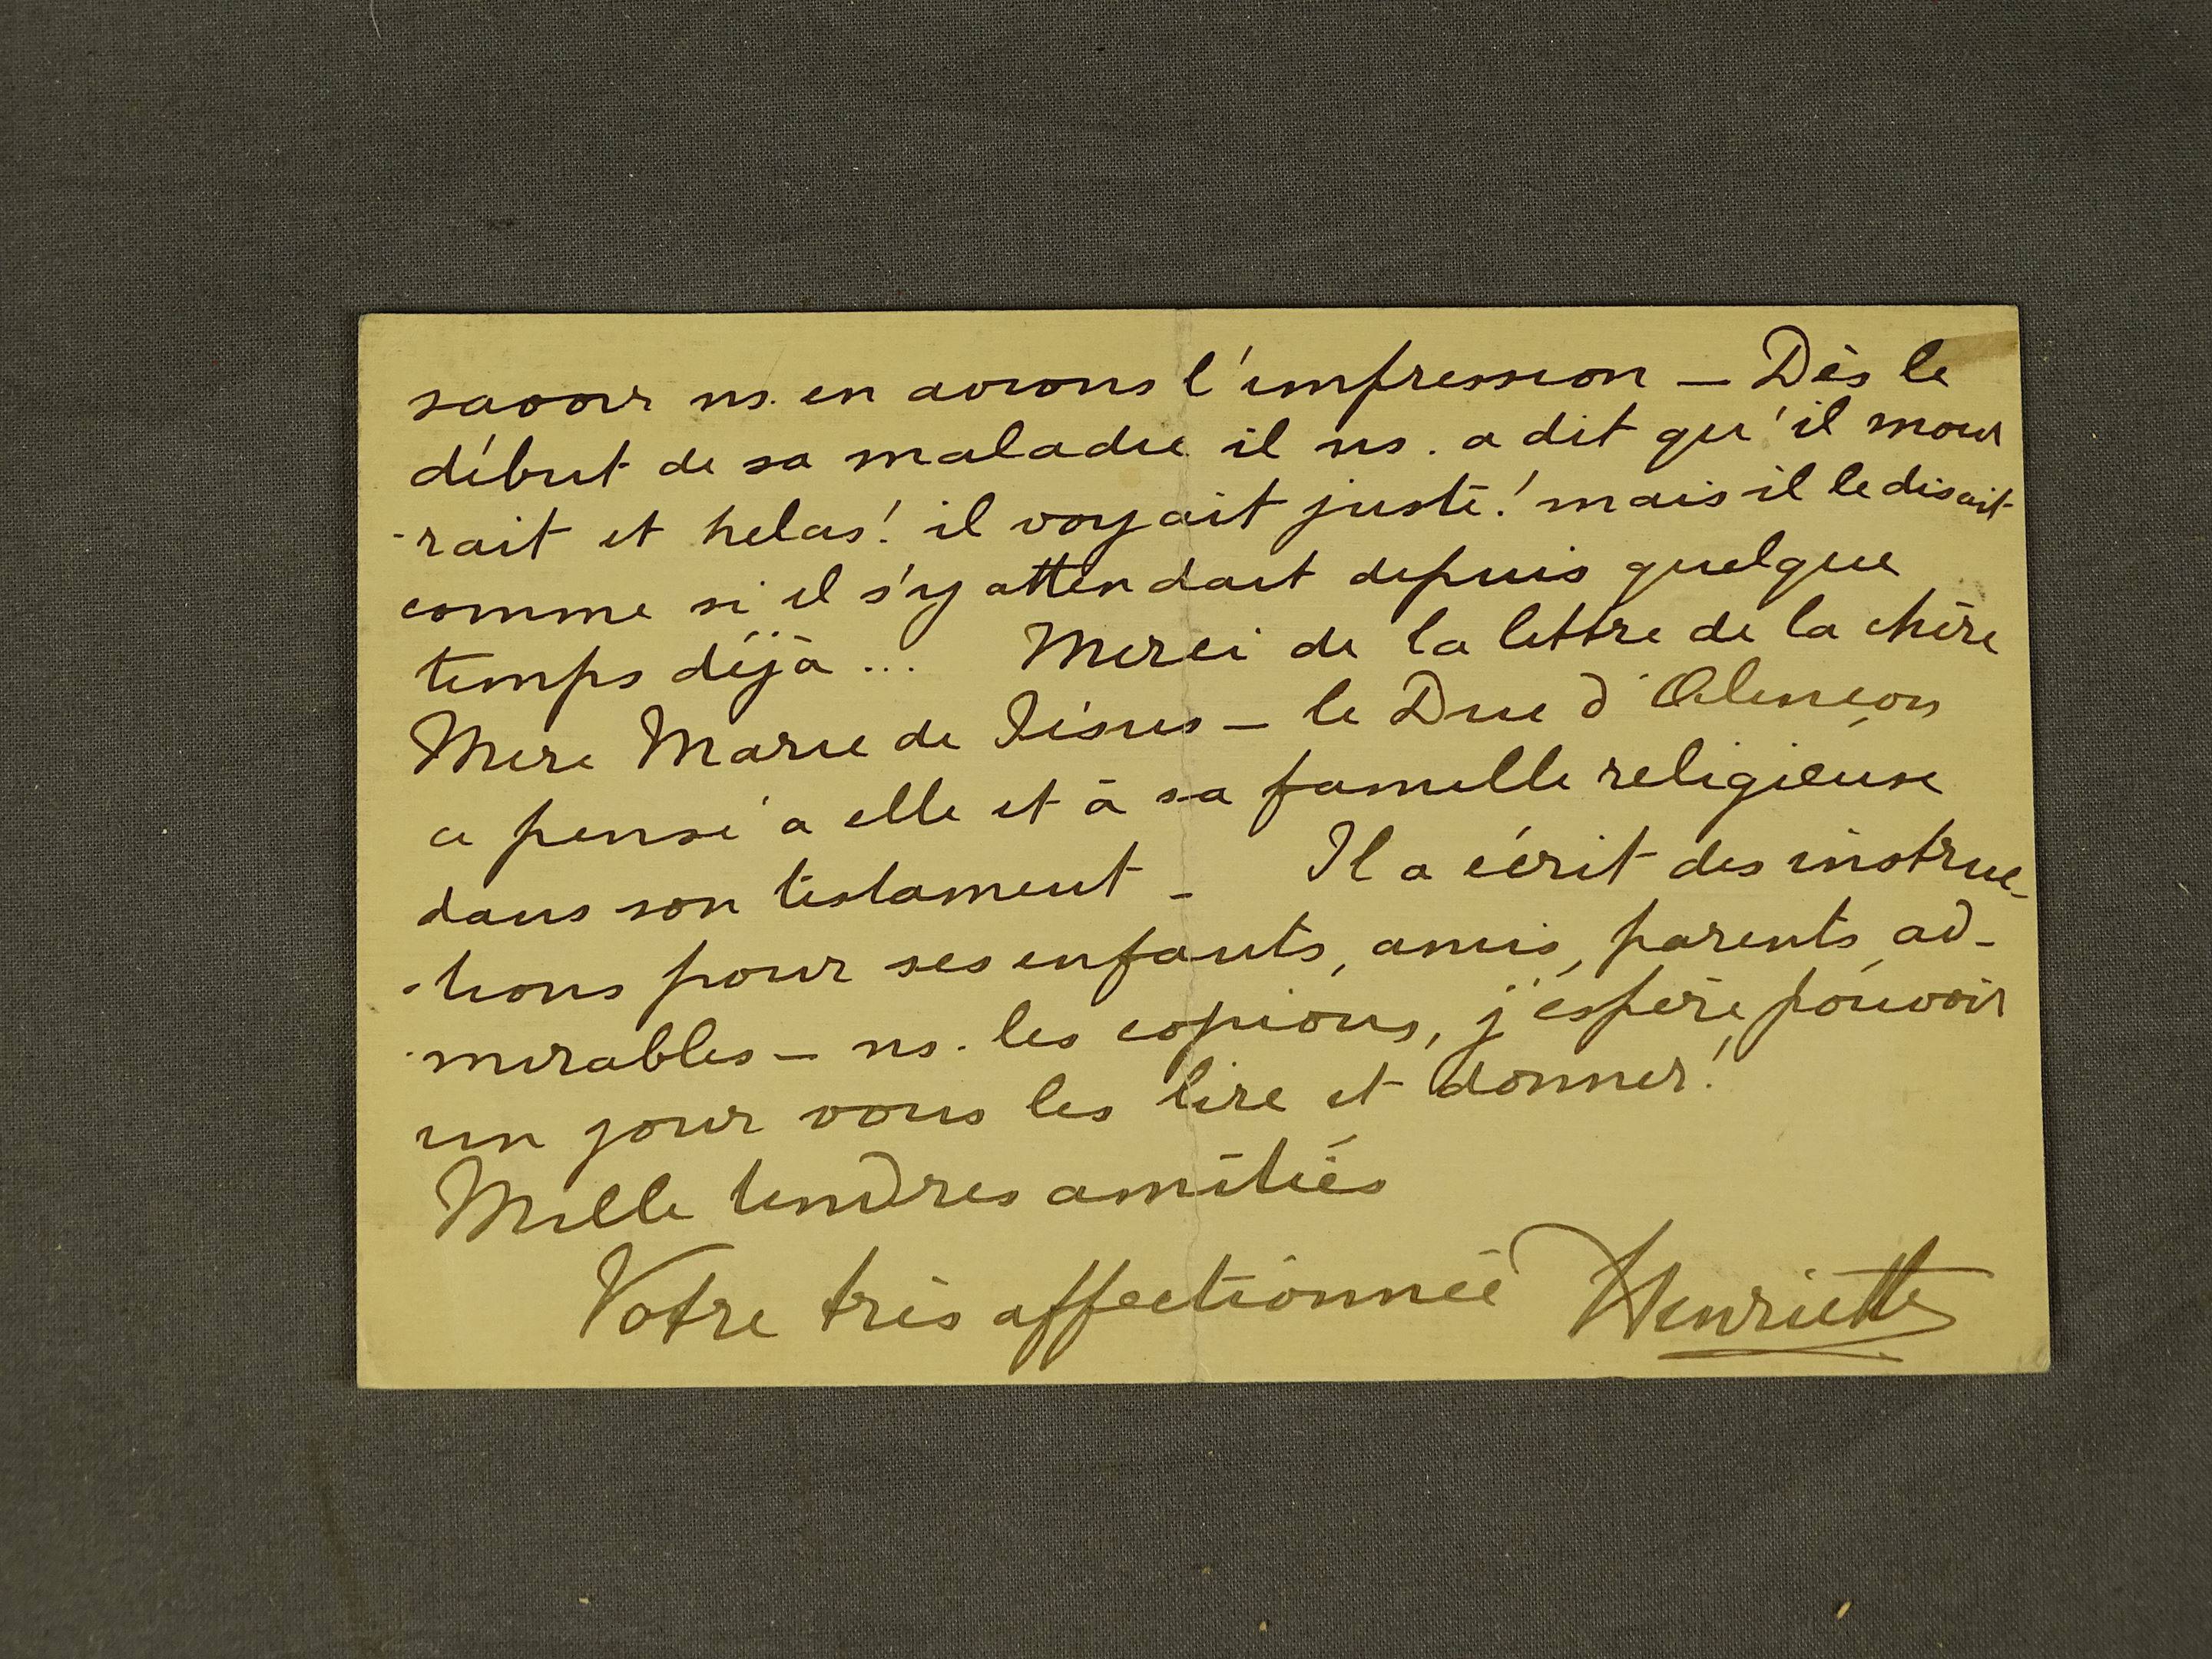 savoir ns. en avions l'impression — Dès le
début de sa maladie il ns. a dit qu'il mour
-rait et helas! il voyait juste! mais il le disait
comme si il s'y attendait depuis quelque
temps déjà ... Merci de la lettre de la chère
Mère Marie de Jésus — le Duc d'Alençon
a pensé à elle et à sa famille religieuse
dans son testament — Il a écrit des instruc-
-tions pour ses enfants, amis, parents, ad-
-mirables — ns. les copions, j'espère pouvoir
un jour vous les lire et donner!
Mille tendres amitiés
Votre très affectionnée Henriette